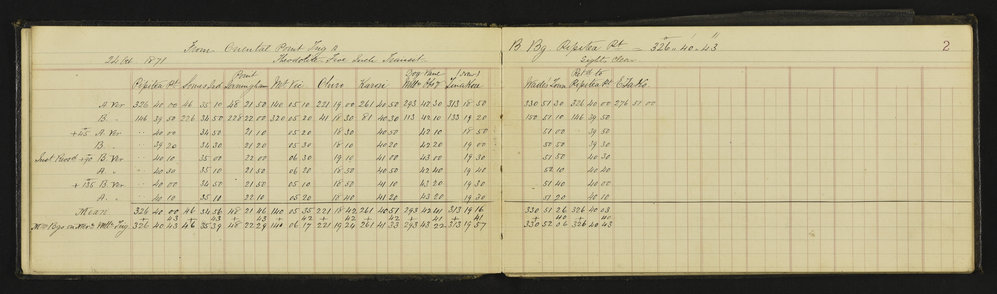 From Oriental Point Trig S B Bg. Pipitea Pt = 326° 40' 43" 2
24 Oct 1871 Theodolite Five Inch Transit Light, Clear
Point Dog vane Ret'd to
Pipitea Pt Somes Isd Birmingham Mt Vic Ohiro Karori Tinakori Wades Town Pipitea Pt
A Ver 326 40 00 46 35 10 48 21 50 140 05 10 221 19 00 261 40 50 293 42 30 313 18 50 330 51 30 326 40 00 276 51 00
B " 146 39 50 226 34 50 228 22 00 320 05 20 41 18 30 81 40 30 113 42 10 133 19 20 150 51 10 146 39 50
+45 A Ver " 40 00 34 50 21 10 05 20 18 30 40 50 42 10 18 50 51 00 39 50
B " " 39 20 34 30 21 20 05 30 18 10 40 20 42 20 19 00 50 50 39 30
Inst Revd +90 B Ver " 40 10 35 00 22 00 06 30 19 10 41 00 43 00 19 30 51 50 40 30
A " " 40 30 35 10 21 50 06 20 18 30 40 50 42 40 19 40 52 10 40 40
+135 B Ver " 40 00 34 50 21 50 05 10 18 50 41 10 43 20 19 30 51 40 40 00
A " " 40 10 35 10 22 10 05 20 18 40 41 20 43 20 19 30 51 20 40 10
Mean 326 40 00 46 34 56 48 21 46 140 05 35 221 18 42 261 40 51 293 42 41 313 19 16 330 51 26 326 40 03
+ 43 + 43 + 43 + 42 + 42 + 42 + 41 + 41 + 40 + 40
326 40 43 46 35 39 48 22 29 140 06 17 221 19 24 261 41 33 293 43 22 313 19 57 330 52 06 326 40 43